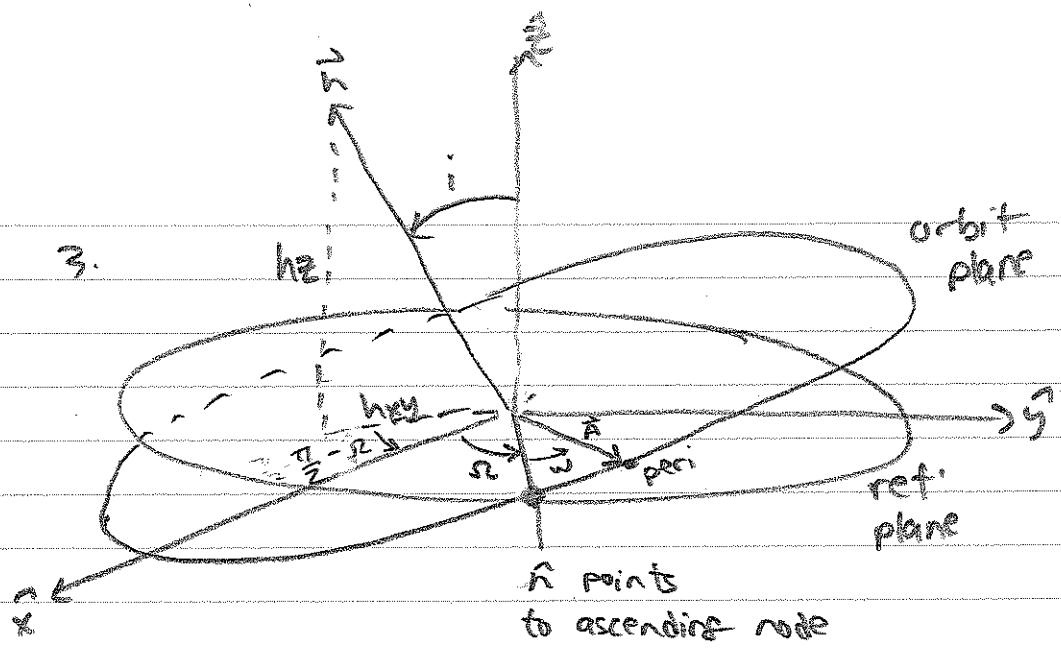 ẑ
h⃗
i
3.
hz
orbit
plane
hxy
π/2 - Ω
Ω
ω
A⃗
peri
ŷ
ref.
plane
x̂
n̂ points
to ascending node